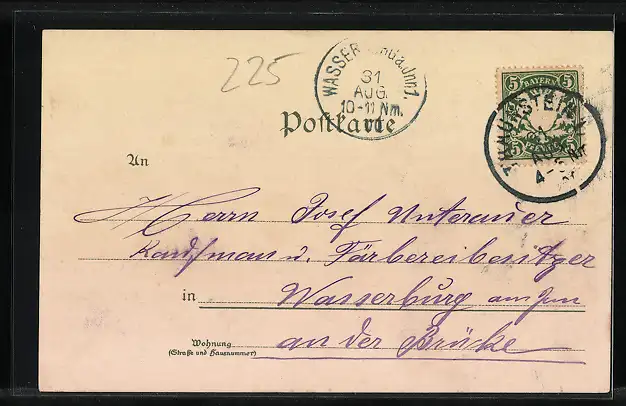 225
WASSER a.Jnn1.
31
AUG.
10-11 Nm.
5 BAYERN 5
Postkarte
4-5
An
Herrn Josef Unterauer
Kaufmann u. Färbereibesitzer
in Wasserburg am Inn
Wohnung an der Brücke
(Straße und Hausnummer)